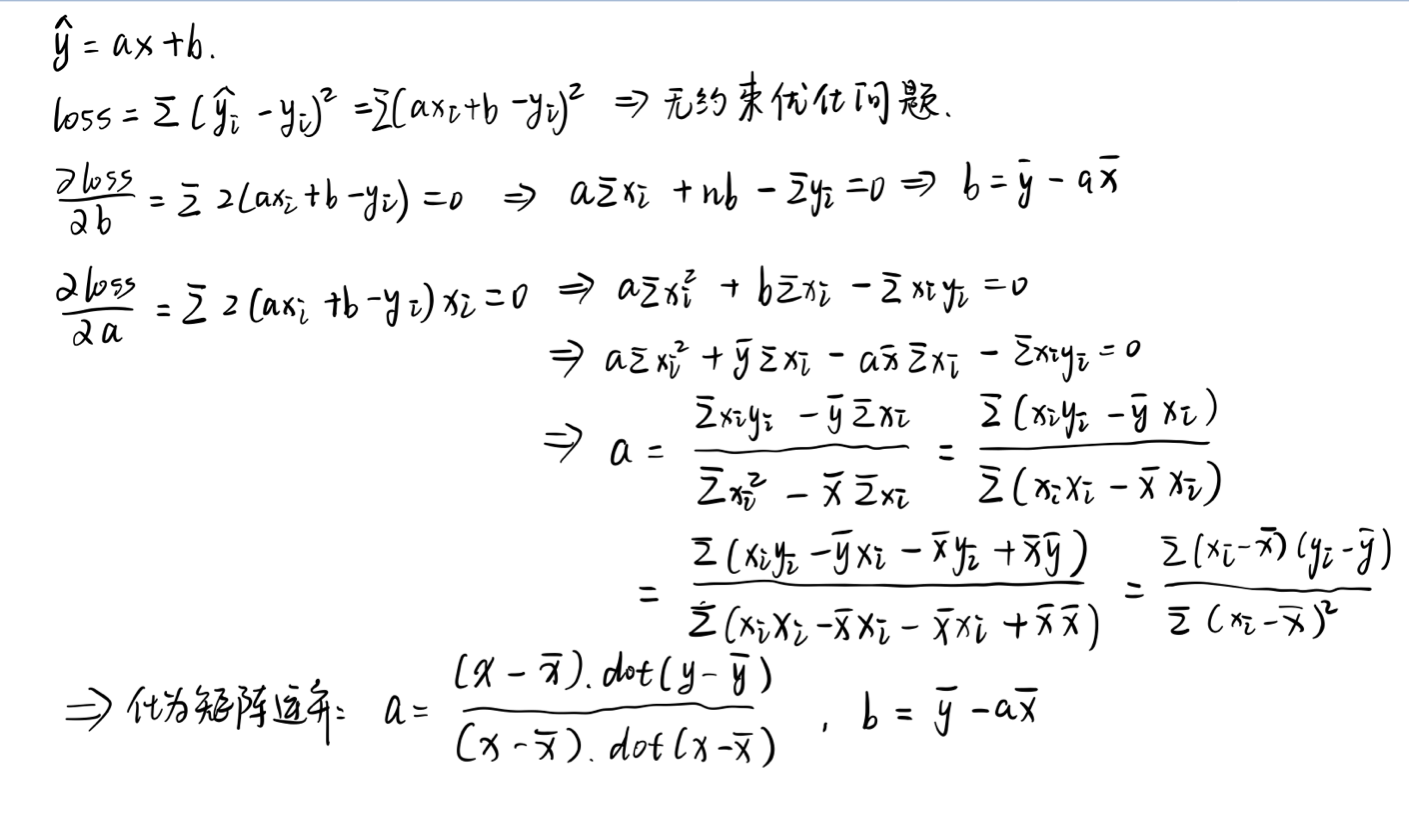 ŷ = ax + b.
loss = Σ(ŷᵢ - yᵢ)² = Σ(axᵢ + b - yᵢ)² ⇒ 无约束优化问题.
∂loss/∂b = Σ 2(axᵢ + b - yᵢ) = 0 ⇒ aΣxᵢ + nb - Σyᵢ = 0 ⇒ b = ȳ - ax̄
∂loss/∂a = Σ 2(axᵢ + b - yᵢ)xᵢ = 0 ⇒ aΣxᵢ² + bΣxᵢ - Σxᵢyᵢ = 0
⇒ aΣxᵢ² + ȳΣxᵢ - ax̄Σxᵢ - Σxᵢyᵢ = 0
⇒ a = (Σxᵢyᵢ - ȳΣxᵢ)/(Σxᵢ² - x̄Σxᵢ) = Σ(xᵢyᵢ - ȳxᵢ)/Σ(xᵢxᵢ - x̄xᵢ)
= Σ(xᵢyᵢ - ȳxᵢ - x̄yᵢ + x̄ȳ)/Σ(xᵢxᵢ - x̄xᵢ - x̄xᵢ + x̄x̄) = Σ(xᵢ - x̄)(yᵢ - ȳ)/Σ(xᵢ - x̄)²
⇒ 化为矩阵运算: a = (x - x̄).dot(y - ȳ)/(x - x̄).dot(x - x̄) , b = ȳ - ax̄